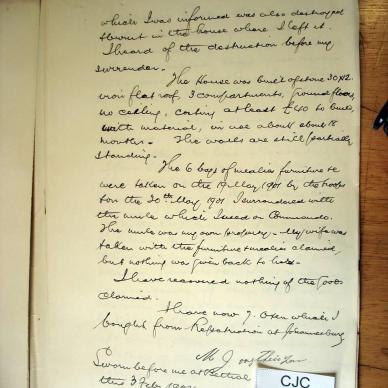 which I was informed was also destroyed
& burnt in the house where I left it.
I heard of the destruction before my
surrender.
The House was built of stone 30 x 12
iron flat roof, 3 compartments, ground floor,
no ceiling, costing at least £40 to build,
with material, in use about about 18
months. The walls are still (partially
standing.
The 6 bags of mealies furniture &c
were taken on the 19 May 1901 by the troops
& on the 20th May 1901 I surrendered with
the mule which I used on Commando.
The mule was my own property. My wife was
taken with the furniture & mealies claimed,
but nothing was given back to her.
I have received nothing of the goods
claimed.
I have now 7 oxen which I
bought from Repatriation at Johannesburg
M J
Sworn before me at
this 3 Feb
CJC